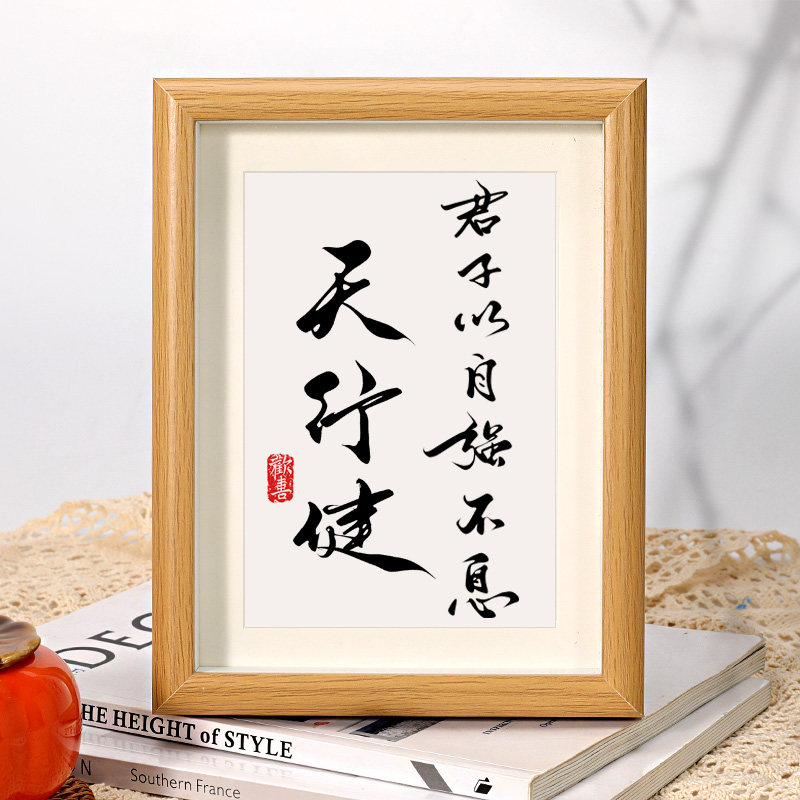 君子以自强不息
天行健
歡喜
DEC
HE HEIGHT of STYLE
N
Southern France